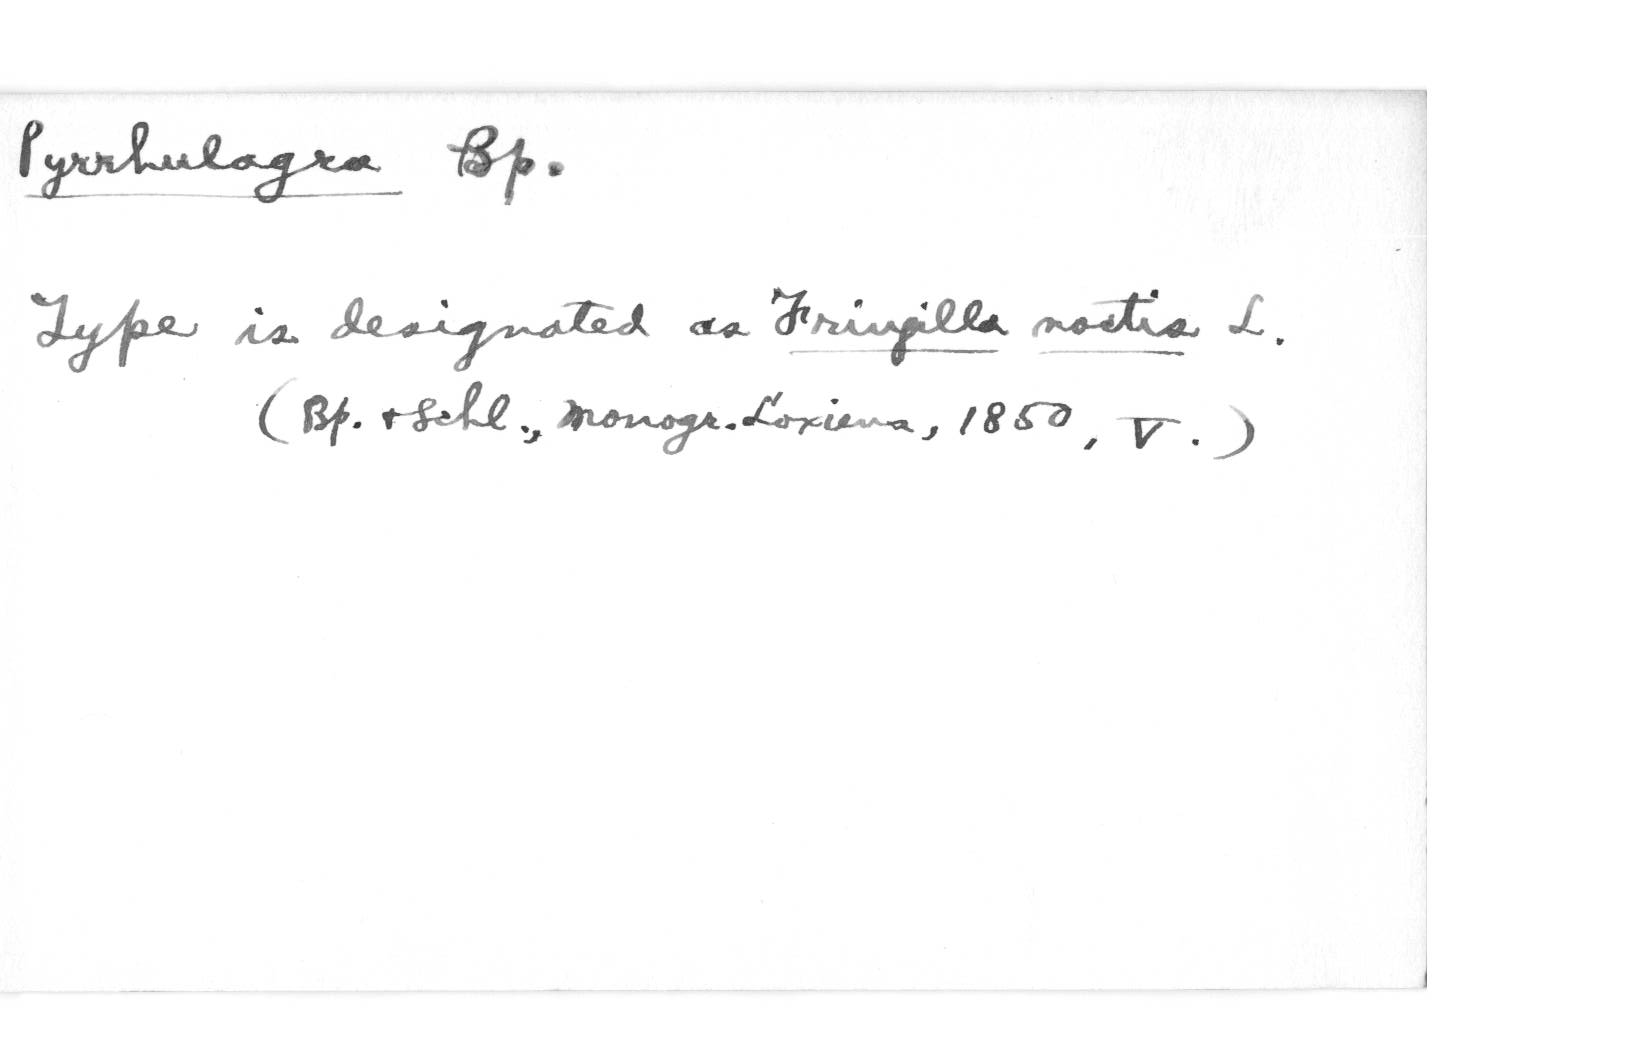 Pyrrhulagra Bp.
Type is designated as Fringilla noctis L.
(Bp. + Schl., Monogr. Loxiens, 1850, V.)